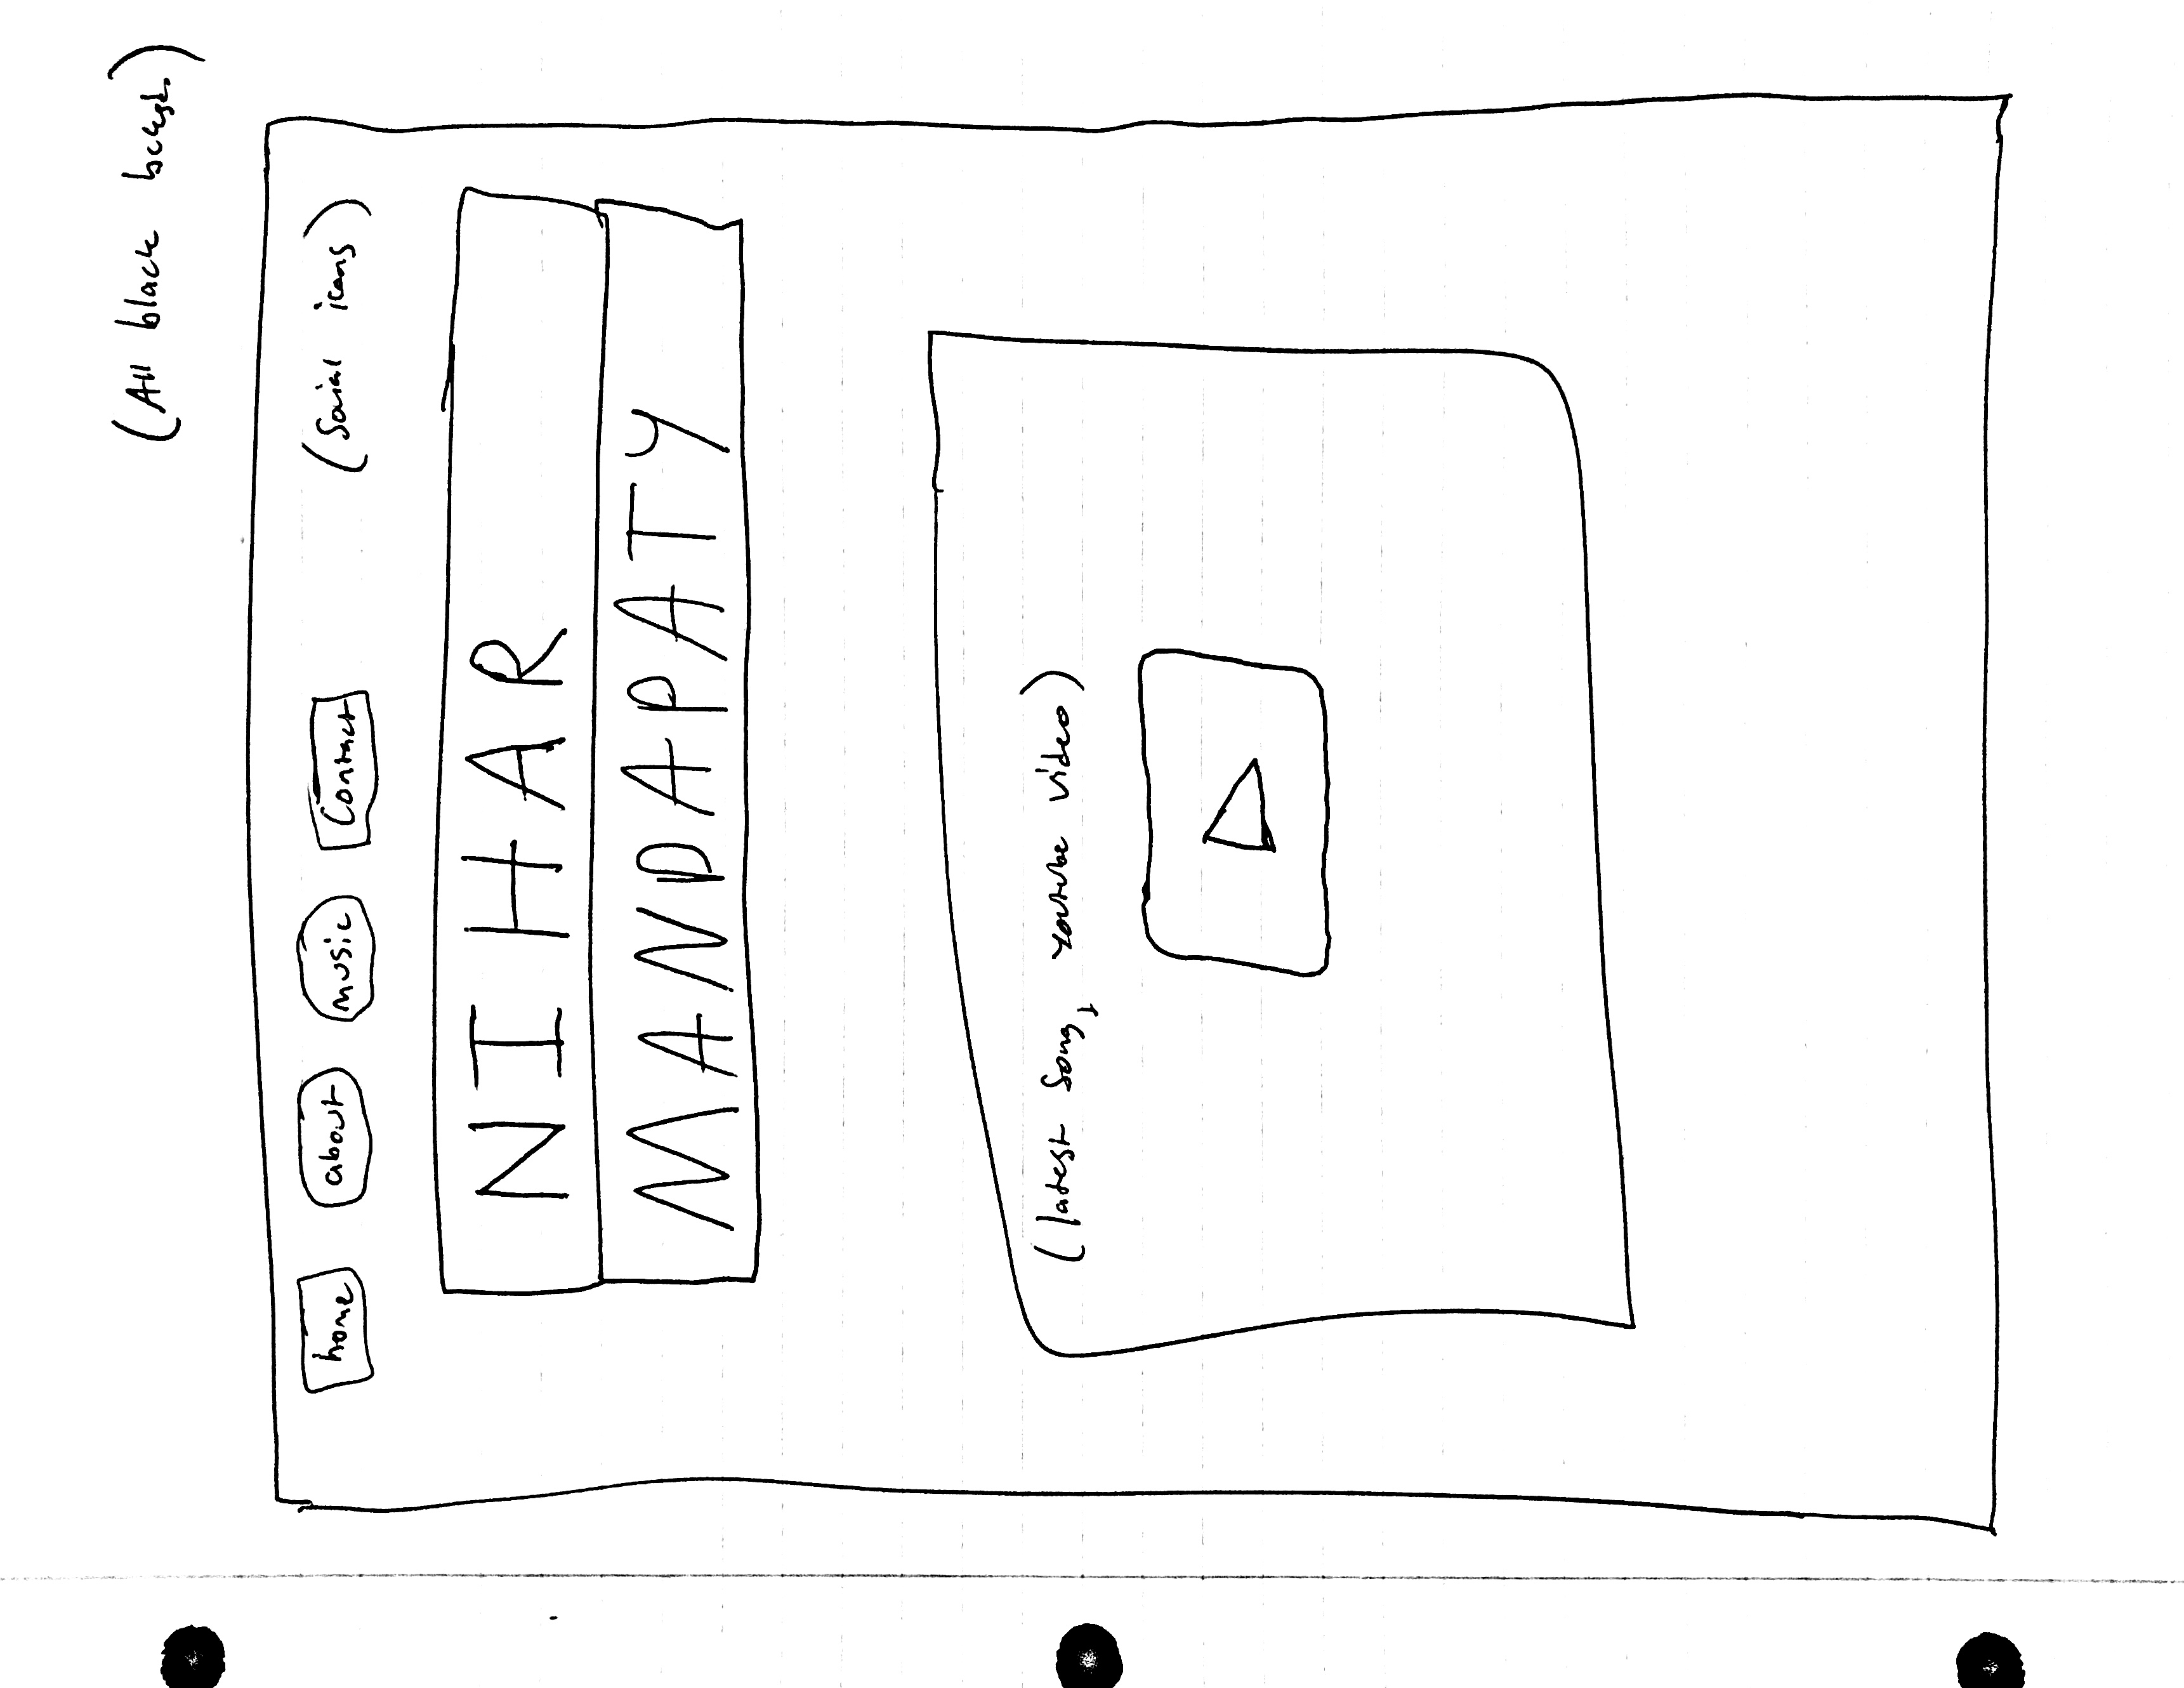 (All black
home about music Contact (Social icons)
NIHAR
MANDAPATY
(latest song, youtube video)